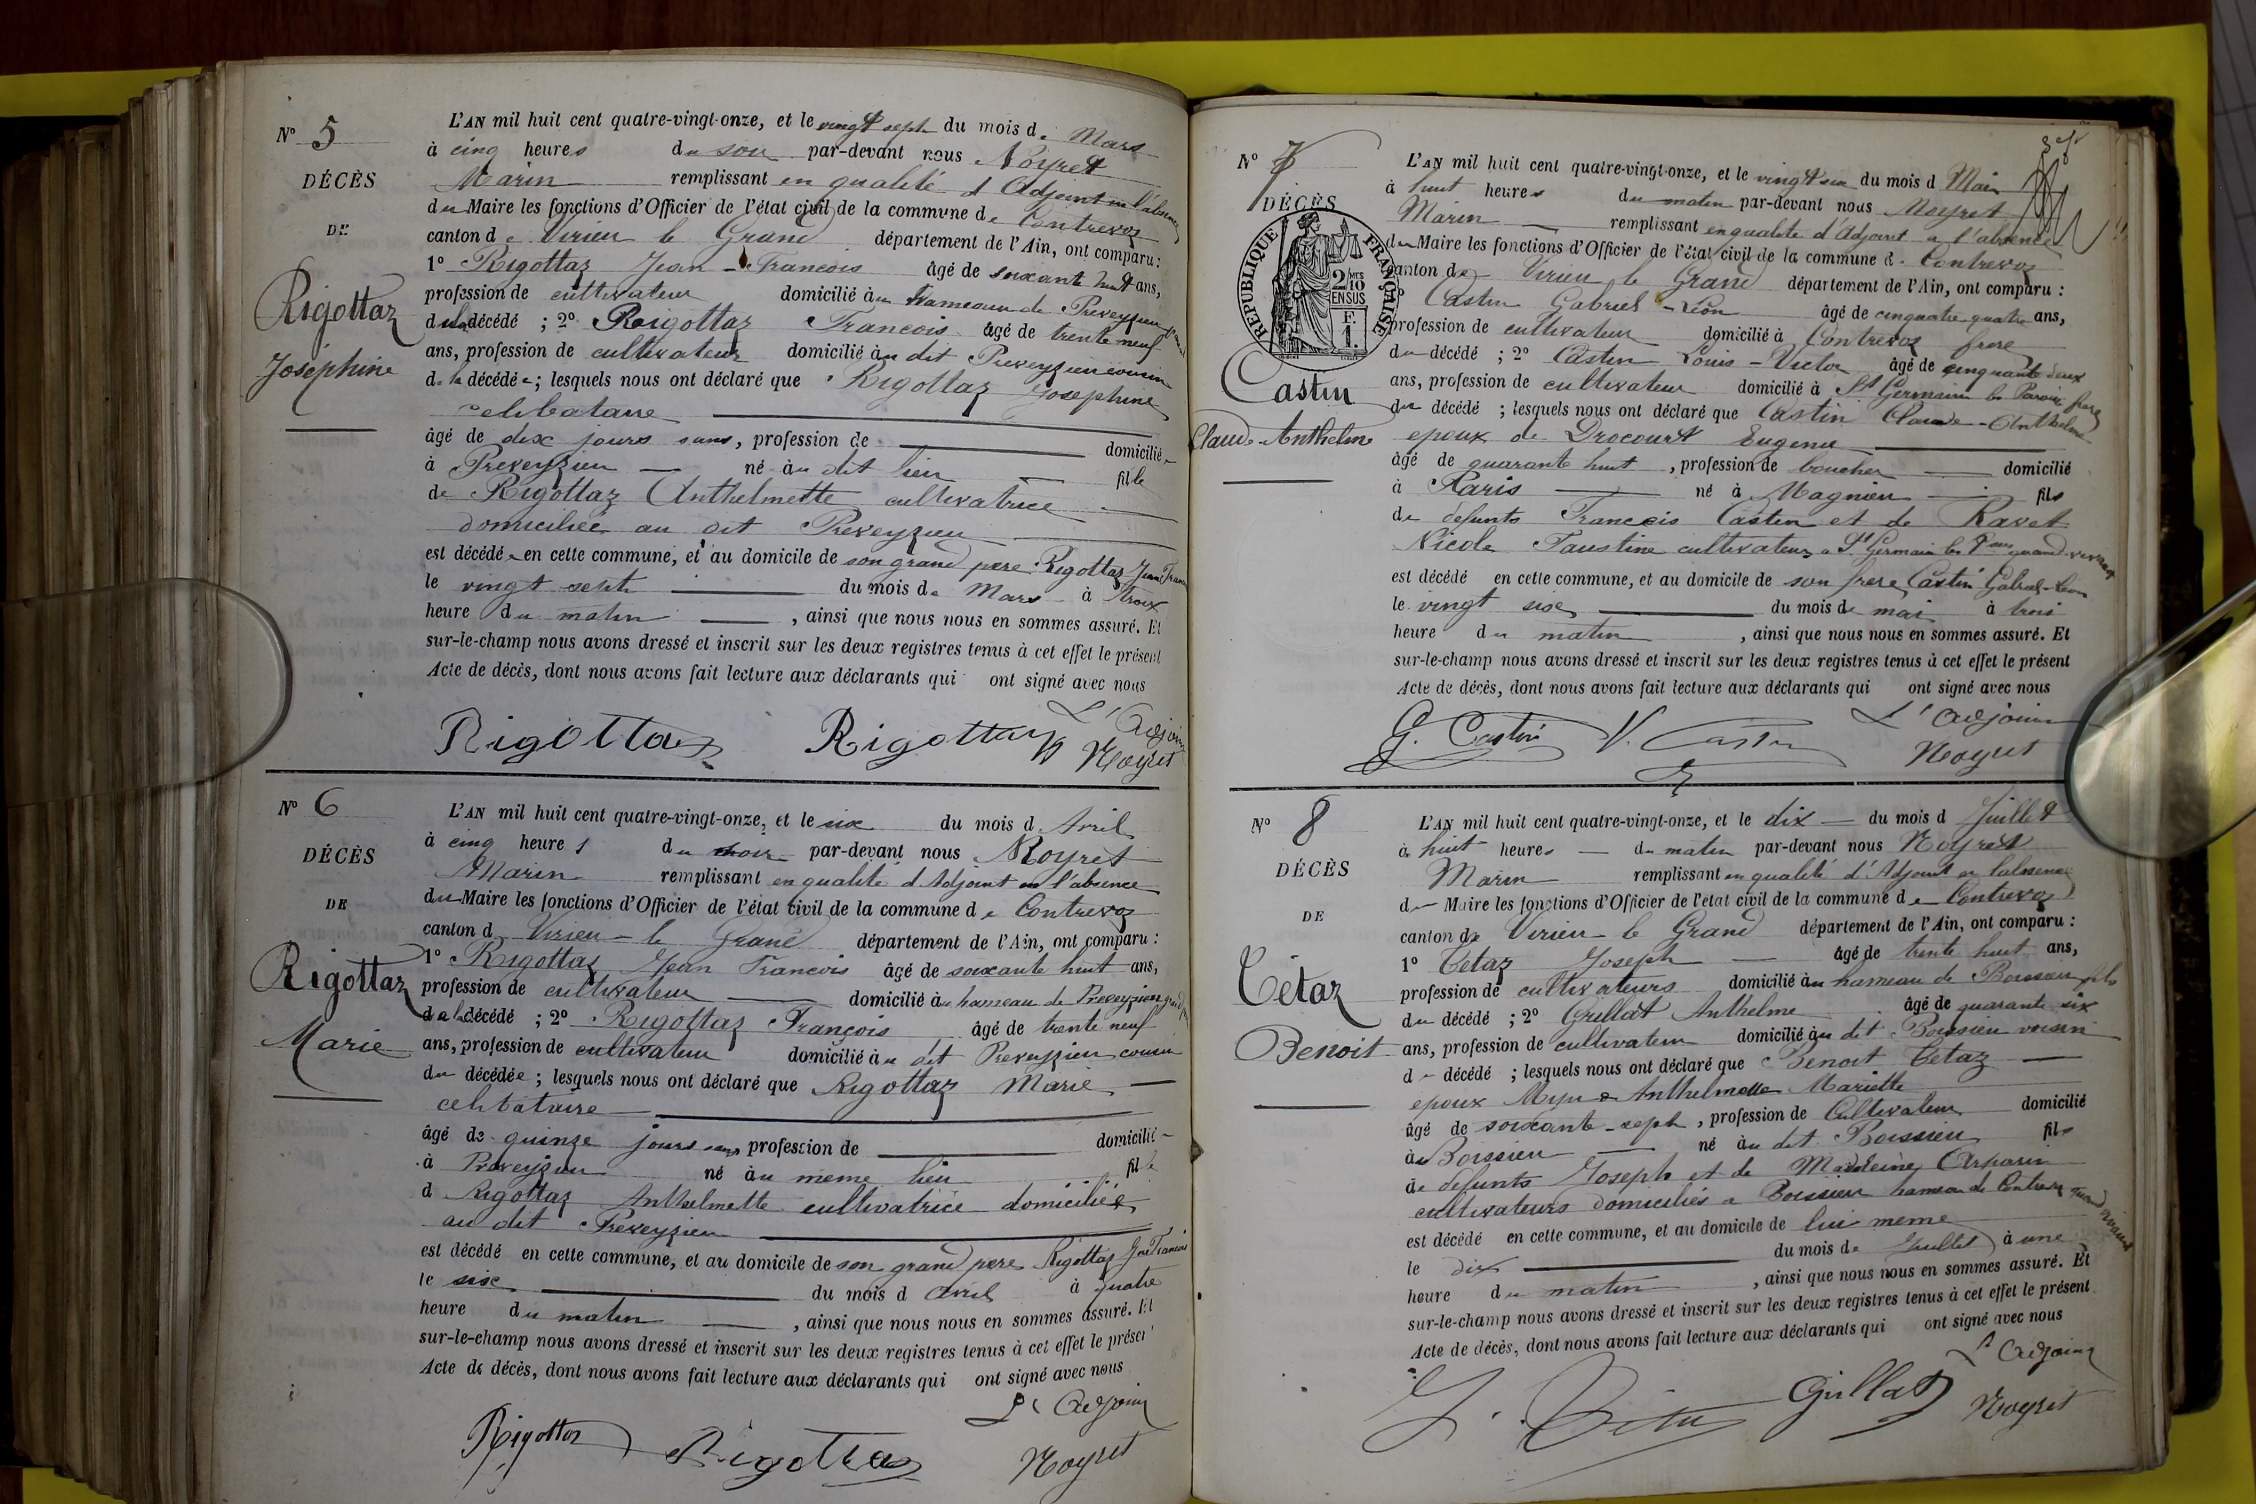 N° 5
DÉCÈS
DE
Rigottaz
Joséphine
L'AN mil huit cent quatre-vingt-onze, et le vingt sept du mois de Mars
à cinq heures du soir par-devant nous Noyret
Marin remplissant en qualité d'Adjoint en l'absence
du Maire les fonctions d'Officier de l'état civil de la commune de Contrevoz
canton de Virieu le Grand département de l'Ain, ont comparu :
1° Rigottaz Jean-Francois âgé de soixante huit ans,
profession de cultivateur domicilié à un hameau de Preveyzieu
de la décédé ; 2° Rigottaz Francois âgé de trente neuf
ans, profession de cultivateur domicilié au dit Preveyzieu cousin
de la décédée ; lesquels nous ont déclaré que Rigottaz Josephine
celibataire
âgé de dix jours sans, profession de domicilié
à Preveyzieu né au dit lieu fille
de Rigottaz Anthelmette cultivatrice
domiciliée au dit Preveyzieu
est décédé en cette commune, et au domicile de son grand pere Rigottaz Jean Francois
le vingt sept du mois de Mars à trois
heure du matin , ainsi que nous nous en sommes assuré. Et
sur-le-champ nous avons dressé et inscrit sur les deux registres tenus à cet effet le présent
Acte de décès, dont nous avons fait lecture aux déclarants qui ont signé avec nous
Rigottaz Rigottaz L'Adjoint
Noyret
N° 6
DÉCÈS
DE
Rigottaz
Marie
L'AN mil huit cent quatre-vingt-onze, et le six du mois d Avril
à cinq heures du soir par-devant nous Noyret
Marin remplissant en qualité d'Adjoint en l'absence
du Maire les fonctions d'Officier de l'état civil de la commune de Contrevoz
canton d Virieu-le Grand département de l'Ain, ont comparu :
1° Rigottaz Jean Francois âgé de soixante huit ans,
profession de cultivateur domicilié au hameau de Preveyzieu
de la décédé ; 2° Rigottaz François âgé de trente neuf
ans, profession de cultivateur domicilié au dit Preveyzieu cousin
du décédée ; lesquels nous ont déclaré que Rigottaz Marie
celibataire
âgé de quinze jours sans profession de domicilié
à Preveyzieu né au meme lieu fille
d Rigottaz Anthelmette cultivatrice domiciliée
au dit Preveyzieu
est décédé en cette commune, et au domicile de son grand pere Rigottaz Jean Francois
le six du mois d avril à quatre
heure du matin , ainsi que nous nous en sommes assuré. Et
sur-le-champ nous avons dressé et inscrit sur les deux registres tenus à cet effet le présent
Acte de décès, dont nous avons fait lecture aux déclarants qui ont signé avec nous
L'Adjoint
Rigottaz Rigottaz Noyret
N° 7
DÉCÈS
RÉPUBLIQUE FRANÇAISE
2/10 EN SUS
F. 1.
Castin
Claude-Anthelme
L'AN mil huit cent quatre-vingt-onze, et le vingt six du mois d Mai
à huit heures du matin par-devant nous Noyret
Marin remplissant en qualite d'Adjoint en l'absence
du Maire les fonctions d'Officier de l'état civil de la commune de Contrevoz
canton de Virieu le Grand département de l'Ain, ont comparu :
Castin Gabriel-Léon âgé de cinquante quatre ans,
profession de cultivateur domicilié à Contrevoz frere
du décédé ; 2° Castin Louis-Victor âgé de cinquante deux
ans, profession de cultivateur domicilié à St Germain les Paroisses frere
du décédé ; lesquels nous ont déclaré que Castin Claude-Anthelme
epoux de Drocourt Eugenie
âgé de quarante huit , profession de boucher domicilié
à Paris né à Magnieu fils
de defunts Francois Castin et de Ravet
Nicole Faustine cultivateurs a St Germain les P.ses quand vivant
est décédé en cette commune, et au domicile de son frere Castin Gabriel-Leon
le vingt six du mois de mai à trois
heure du matin , ainsi que nous nous en sommes assuré. Et
sur-le-champ nous avons dressé et inscrit sur les deux registres tenus à cet effet le présent
Acte de décès, dont nous avons fait lecture aux déclarants qui ont signé avec nous
G. Castin V. Castin L'Adjoint
Noyret
N° 8
DÉCÈS
DE
Tétaz
Benoit
L'AN mil huit cent quatre-vingt-onze, et le dix du mois d Juillet
à huit heures du matin par-devant nous Noyret
Marin remplissant en qualité d'Adjoint en l'absence
d Maire les fonctions d'Officier de l'état civil de la commune de Contrevoz
canton de Virieu-le Grand département de l'Ain, ont comparu :
1° Tétaz Joseph âgé de trente huit ans,
profession de cultivateurs domicilié au hameau de Boissieu fils
du décédé ; 2° Grillat Anthelme âgé de quarante six
ans, profession de cultivateur domicilié au dit Boissieu voisin
d décédé ; lesquels nous ont déclaré que Benoit Tetaz
epoux Anthelmette Mariette
âgé de soixante-sept , profession de Cultivateur domicilié
à Boissieu né au dit Boissieu fils
de defunts Joseph et de Madeleine Arparin
cultivateurs domiciliés a Boissieu hameau de Contrevoz quand vivant
est décédé en cette commune, et au domicile de lui meme
le dix du mois de Juillet à une
heure du matin , ainsi que nous nous en sommes assuré. Et
sur-le-champ nous avons dressé et inscrit sur les deux registres tenus à cet effet le présent
Acte de décès, dont nous avons fait lecture aux déclarants qui ont signé avec nous
L'Adjoint
J. Tétaz Grillat Noyret